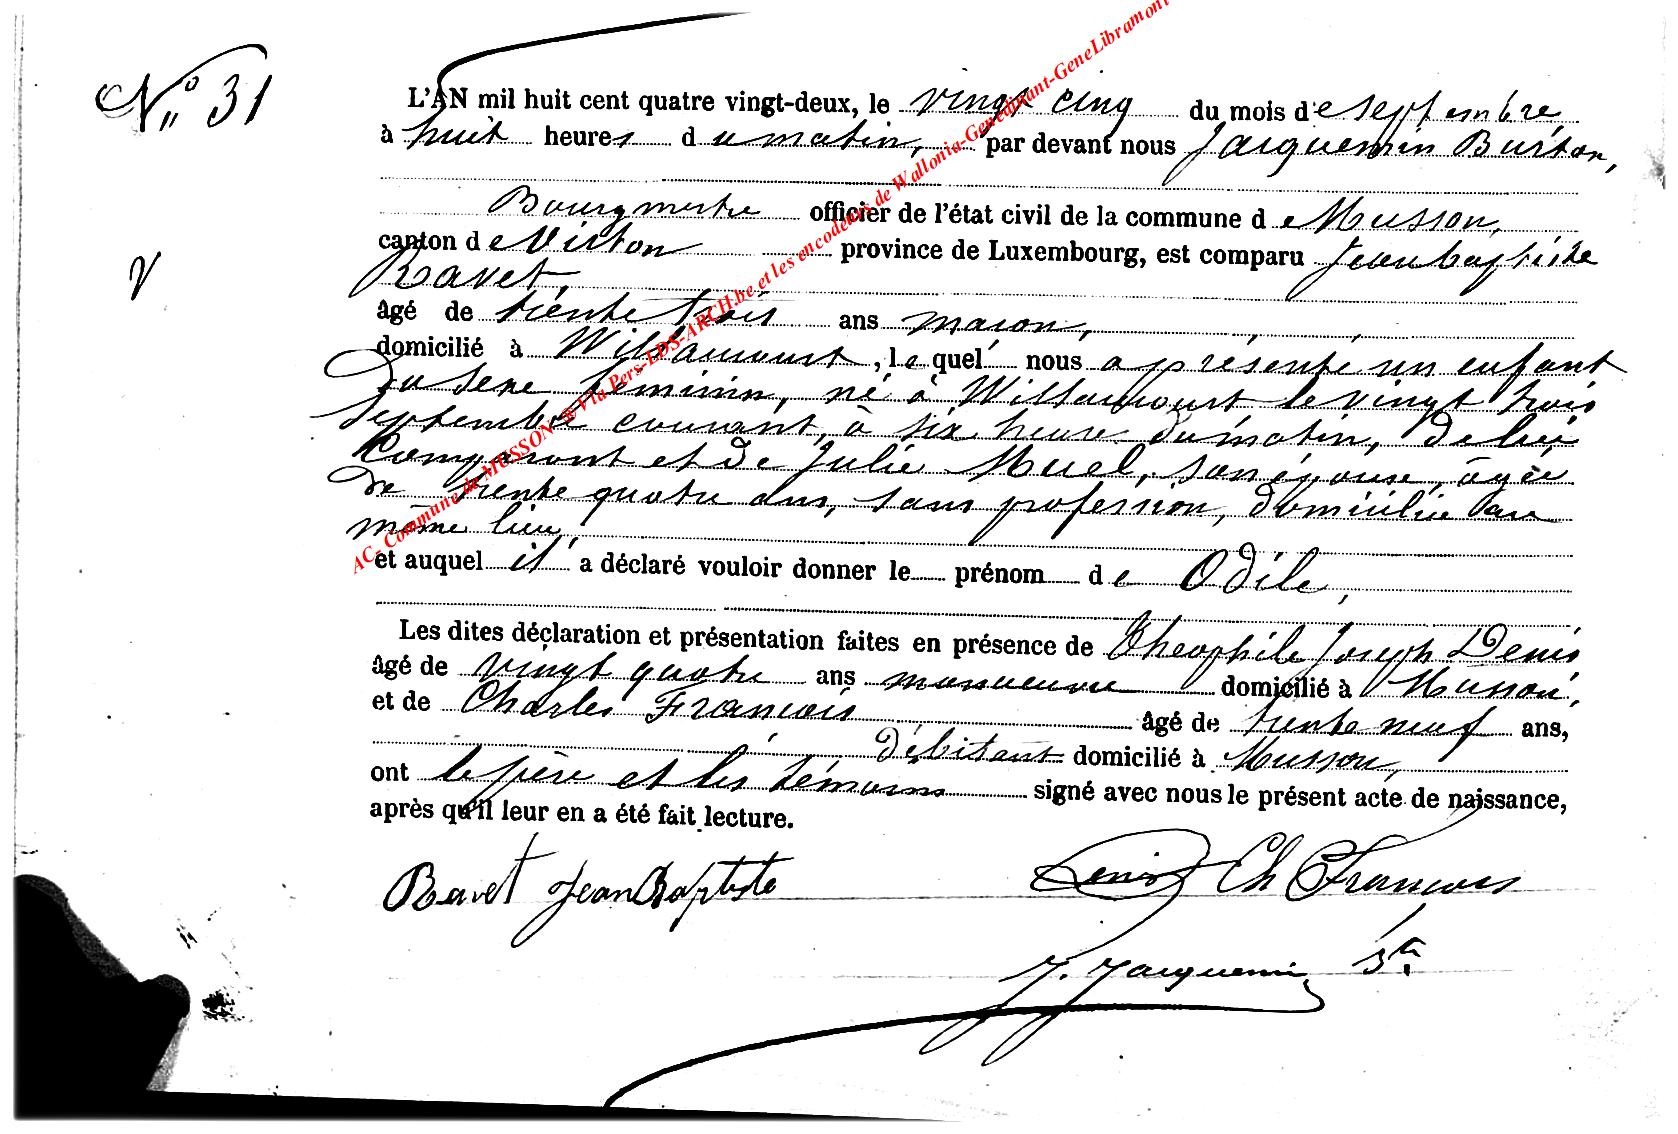 N° 31
L'AN mil huit cent quatre vingt-deux, le vingt cinq du mois de septembre,
à huit heures du matin, par devant nous Jacquemin Burton,
Bourgmestre officier de l'état civil de la commune de Musson,
canton de Virton province de Luxembourg, est comparu Jean baptiste
Ravet,
âgé de trente trois ans maçon,
domicilié à Willancourt, lequel nous a présenté un enfant
du sexe féminin, né à Willancourt le vingt trois
septembre courant, à six heure du matin, de lui
comparant et de Julie Muel, son épouse, âgée
de trente quatre ans, sans profession, domiciliée au
même lieu,
et auquel il a déclaré vouloir donner le prénom de Odile,
Les dites déclaration et présentation faites en présence de Théophile Joseph Denis
âgé de vingt quatre ans manoeuvre domicilié à Musson,
et de Charles François âgé de trente neuf ans,
débitant domicilié à Musson,
ont le père et les témoins signé avec nous le présent acte de naissance,
après qu'il leur en a été fait lecture.
Ravet Jean Baptiste Denis Ch François
J. Jacquemin
AC- Commune de MUSSON @ Via Pers-LDS-ARCH.be et les encodeurs de Wallonia-Genedinant-GeneLibramont